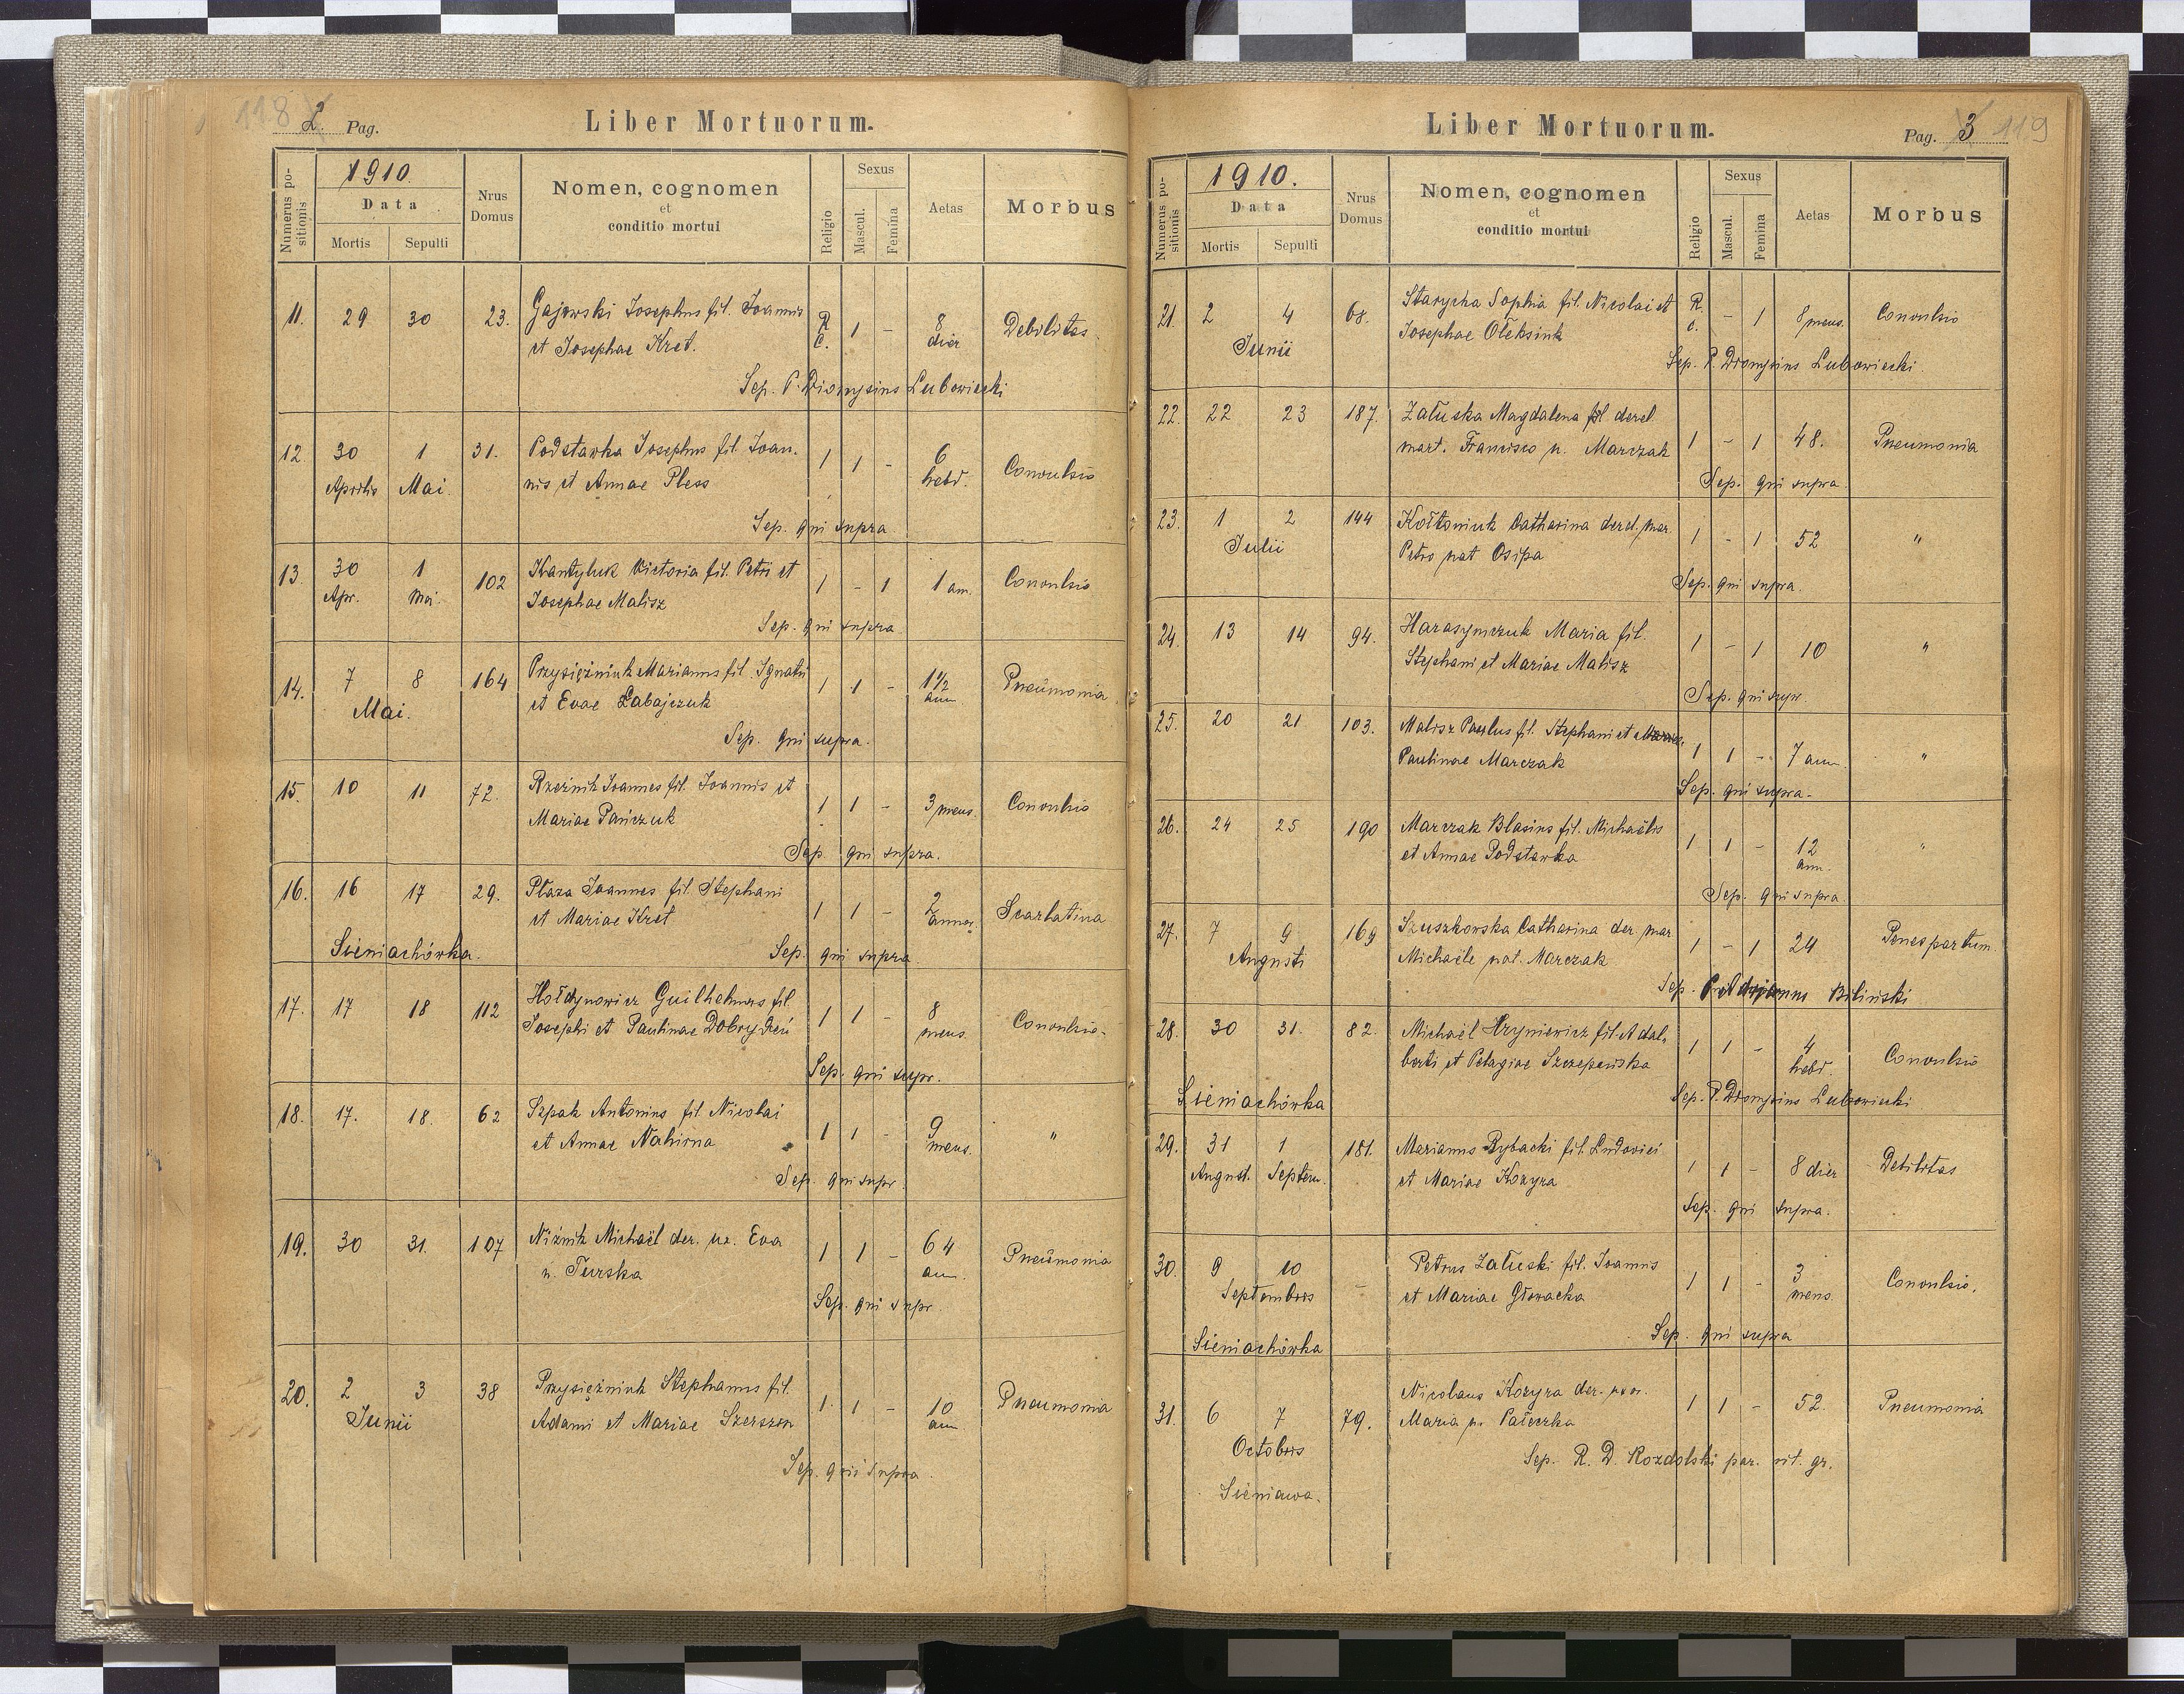 118
2. Pag.
Liber Mortuorum.
Numerus positionis
1910.
Data
Mortis Sepulti
Nrus Domus
Nomen, cognomen
et
conditio mortui
Religio
Sexus
Mascul. Femina
Aetas
Morbus
11. 29 30 23. Gajewski Josephus fil. Joannis R. C. 1 - 8 dier Debilitas
et Josephae Kret.
Sep. P. Dionysius Lubowiecki
12. 30 1 31. Podstawka Josephus fil. Joan- 1 1 - 6 hebd. Convulsio
Aprilis Mai. nis et Annae Pless
Sep. qui supra
13. 30 1 102 Kwantyluk Victoria fil. Petri et 1 - 1 1 ann. Convulsio
Apr. Mai. Josephae Malisz
Sep. qui supra
14. 7 8 164 Przysiężniuk Marianus fil. Ignatii 1 1 - 1 1/2 ann Pneumonia
Mai. et Evae Łabajczuk
Sep. qui supra.
15. 10 11 72. Rzeźnik Joannes fil. Joannis et 1 1 - 3 mens. Convulsio
Mariae Pańczuk
Sep. qui supra.
16. 16 17 29. Płaza Joannes fil. Stephani 1 1 - 2 annor. Scarlatina
et Mariae Kret
Sieniachówka. Sep. qui supra.
17. 17 18 112 Hołdynowicz Guilhelmus fil. 1 1 - 8 mens. Convulsio.
Josephi et Paulinae Dobrydzeń
Sep. qui supr.
18. 17. 18. 62 Szpak Antonius fil. Nicolai 1 1 - 9 mens. "
et Annae Nahirna
Sep. qui supr.
19. 30 31. 107 Niźnik Michaël der. ux. Eva 1 1 - 64 ann. Pneumonia
n. Turska
Sep. qui supr.
20. 2 3 38 Przysiężniuk Stephanus fil. 1. 1 - 10 ann Pneumonia
Junii Adami et Mariae Szerszen
Sep. qui supra.
Liber Mortuorum.
Pag. 3 119
Numerus positionis
1910.
Data
Mortis Sepulti
Nrus Domus
Nomen, cognomen
et
conditio mortui
Religio
Sexus
Mascul. Femina
Aetas
Morbus
21. 2 4 68. Starycha Sophia fil. Nicolai et R. c. - 1 8 mens. Convulsio
Junii Josephae Oleksiuk
Sep. P. Dionysius Lubowiecki.
22. 22 23 187. Załuska Magdalena derel. 1 - 1 48. Pneumonia
mart. Francisco n. Marczak
Sep. qui supra.
23. 1 2 144 Kołtoniuk Catharina derel. mar. 1 - 1 52 "
Julii Petro nat Osipa
Sep. qui supra.
24. 13 14 94. Harasymczuk Maria fil. 1 - 1 10 "
Stephani et Mariae Malisz
Sep. qui supr.
25. 20 21 103. Malisz Paulus fil. Stephani et 1 1 - 7 ann. "
Paulinae Marczak
Sep. qui supra.
26. 24 25 190 Marczak Blasius fil. Michaëlis 1 1 - 12 ann. "
et Annae Podstawka
Sep. qui supra.
27. 7 9 169 Szuszkowska Catharina der. mar 1 - 1 24 Penes partum.
Augusti Michaële nat. Marczak
Sep. Biliński
28. 30 31. 82. Michaël Hryniewicz fil. Adal- 1 1 - 4 hebd. Convulsio
berti et Pelagiae Szczepańska
Sieniachówka Sep. P. Dionysius Lubowiecki
29. 31 1 181. Marianus Rybacki fil. Ludovici 1 1 - 8 dier Debilitas
August. Septem. et Mariae Kozyra
Sep. qui supra.
30. 9 10 - Petrus Załuski fil. Joannis 1 1 - 3 mens. Convulsio.
Septembris et Mariae Głowacka
Sieniachówka Sep. qui supra
31. 6 7 79. Nicolaus Kozyra der. uxor. 1 1 - 52. Pneumonia
Octobris Maria n. Pałeczka
Sep. R. D. Rozdolski par. rit. gr.
Sieniawa.